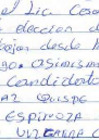 el Lic. Cesa
eleccion d
bajan desde l
go. asimism
candidato
AZ QUISPE
ESPINOZA
VIZCARRA